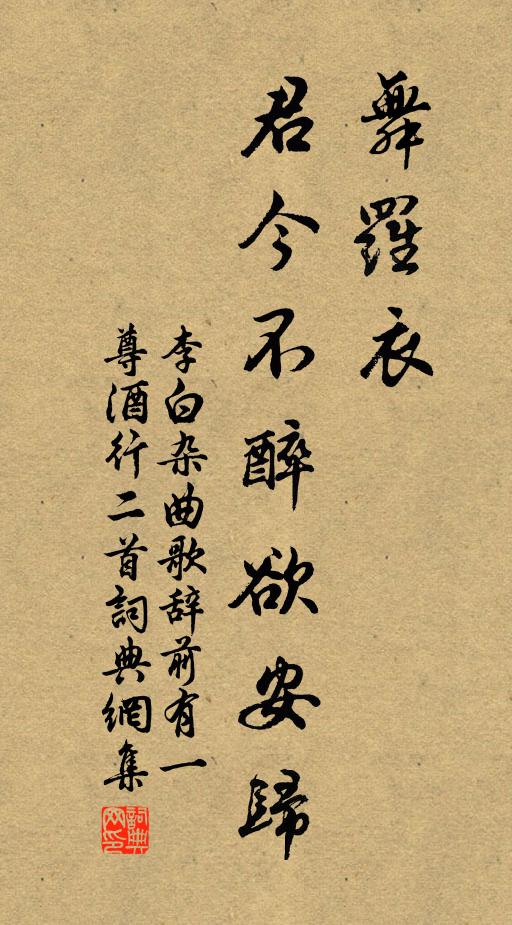 舞羅衣
君今不醉欲安歸
李白杂曲歌辞前有一
尊酒行二首詞典網集
詞典网印